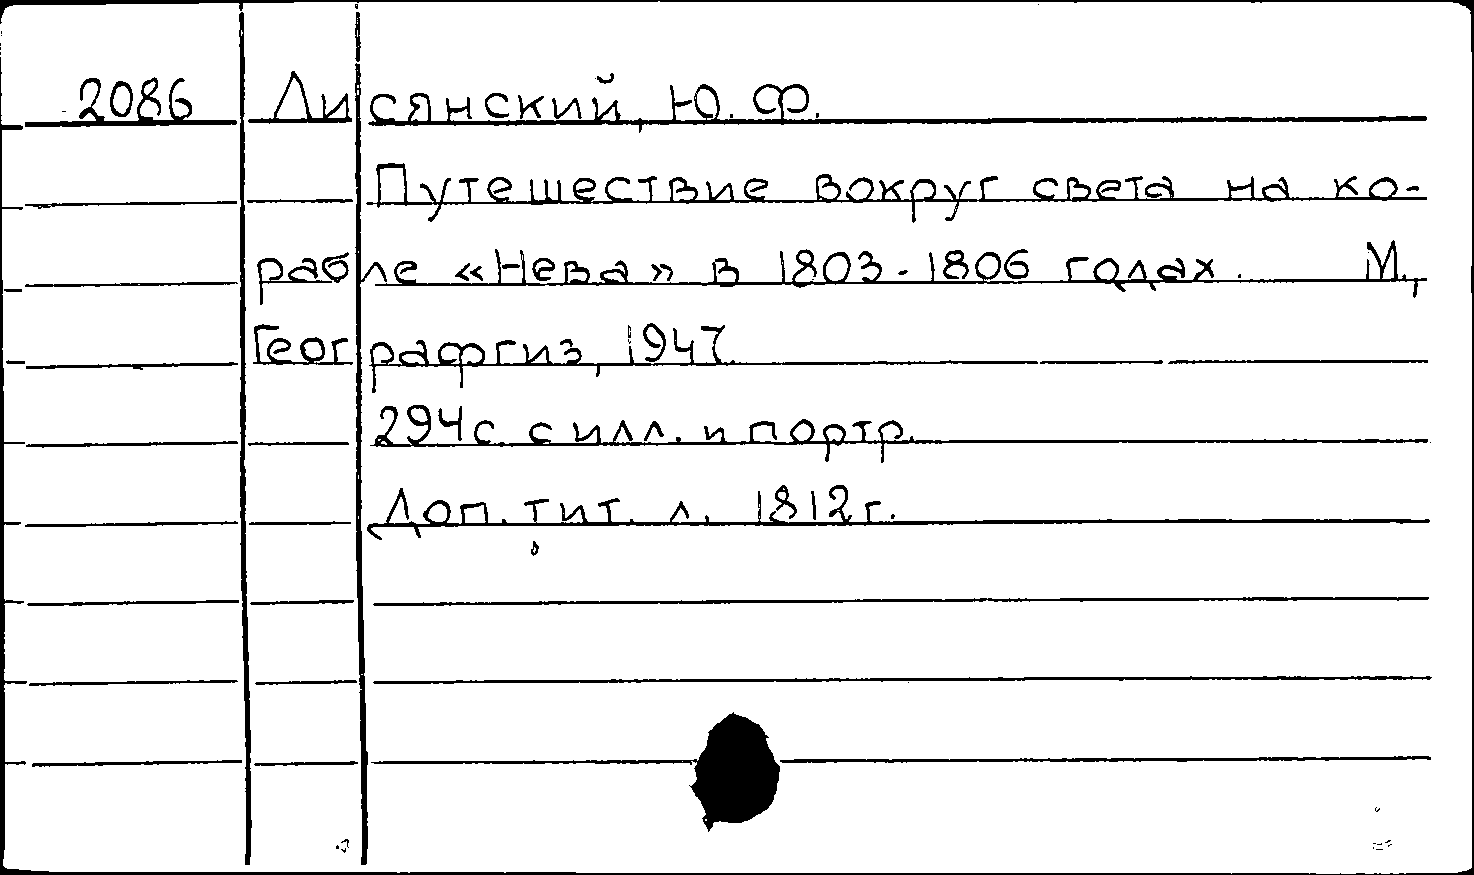 2086 Лисянский, Ю. Ф.
Путешествие вокруг света на ко-
рабле «Нева» в 1803-1806 годах. М.,
Географгиз, 1947.
294 с. с илл. и портр.
Доп. тит. л. 1812 г.